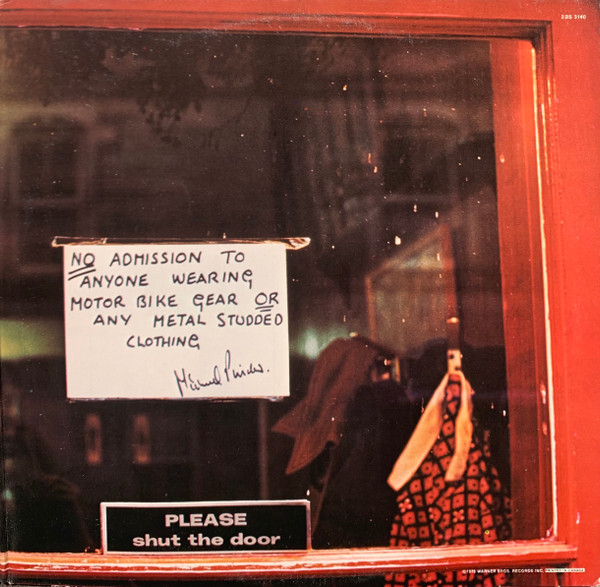 2BS 3140
NO ADMISSION TO
ANYONE WEARING
MOTOR BIKE GEAR OR
ANY METAL STUDDED
CLOTHING
PLEASE
shut the door
WARNER BROS. RECORDS INC.